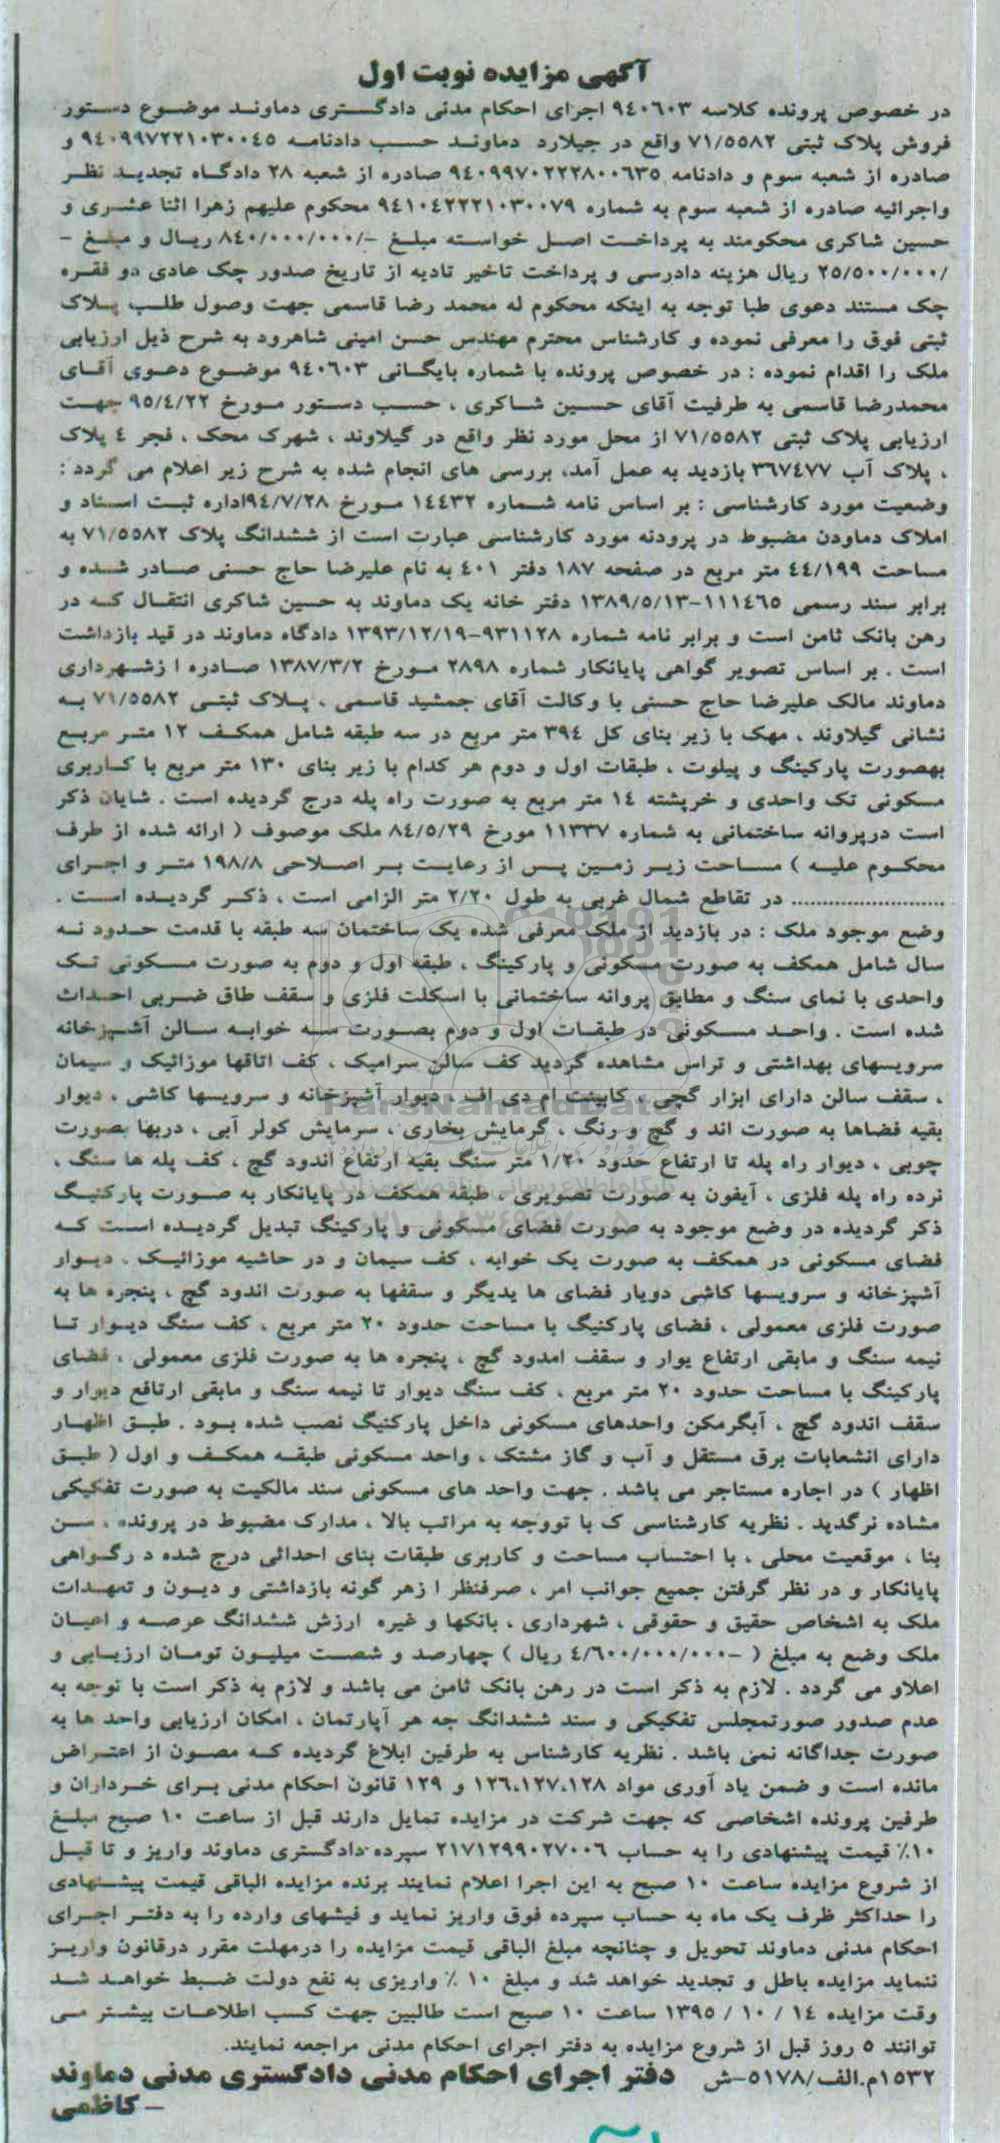 آگهی مزایده نوبت اول
در خصوص پرونده کلاسه ۹۴۰۶۰۳ اجرای احکام مدنی دادگستری دماوند موضوع دستور
فروش پلاک ثبتی ۷۱/۵۵۸۲ واقع در جیلارد دماوند حسب دادنامه ۹۴۰۹۹۷۲۲۱۰۳۰۰۴۵ و
صادره از شعبه سوم و دادنامه ۹۴۰۹۹۷۰۲۲۲۸۰۰۶۳۵ صادره از شعبه ۲۸ دادگاه تجدید نظر
واجرائیه صادره از شعبه سوم به شماره ۹۴۱۰۴۲۲۲۱۰۳۰۰۷۹ محکوم علیهم زهرا اثنا عشری و
حسین شاکری محکومند به پرداخت اصل خواسته مبلغ -/۸۴۰/۰۰۰/۰۰۰ ریال و مبلغ -
/۲۵/۵۰۰/۰۰۰ ریال هزینه دادرسی و پرداخت تاخیر تادیه از تاریخ صدور چک عادی دو فقره
چک مستند دعوی طبا توجه به اینکه محکوم له محمد رضا قاسمی جهت وصول طلب پلاک
ثبتی فوق را معرفی نموده و کارشناس محترم مهندس حسن امینی شاهرود به شرح ذیل ارزیابی
ملک را اقدام نموده : در خصوص پرونده با شماره بایگانی ۹۴۰۶۰۳ موضوع دعوی آقای
محمدرضا قاسمی به طرفیت آقای حسین شاکری ، حسب دستور مورخ ۹۵/۴/۲۲ جهت
ارزیابی پلاک ثبتی ۷۱/۵۵۸۲ از محل مورد نظر واقع در گیلاوند ، شهرک محک ، فجر ۴ پلاک
، پلاک آب ۳۶۷۴۷۷ بازدید به عمل آمد، بررسی های انجام شده به شرح زیر اعلام می گردد :
وضعیت مورد کارشناسی : بر اساس نامه شماره ۱۴۴۳۲ مورخ ۹۴/۷/۲۸اداره ثبت اسناد و
املاک دماودن مضبوط در پرودنه مورد کارشناسی عبارت است از ششدانگ پلاک ۷۱/۵۵۸۲ به
مساحت ۴۴/۱۹۹ متر مربع در صفحه ۱۸۷ دفتر ۴۰۱ به نام علیرضا حاج حسنی صادر شده و
برابر سند رسمی ۱۱۱۴۶۵-۱۳۸۹/۵/۱۳ دفتر خانه یک دماوند به حسین شاکری انتقال که در
رهن بانک ثامن است و برابر نامه شماره ۹۳۱۱۲۸-۱۳۹۳/۱۲/۱۹ دادگاه دماوند در قید بازداشت
است . بر اساس تصویر گواهی پایانکار شماره ۲۸۹۸ مورخ ۱۳۸۷/۳/۲ صادره ا زشهرداری
دماوند مالک علیرضا حاج حسنی با وکالت آقای جمشید قاسمی ، پلاک ثبتی ۷۱/۵۵۸۲ به
نشانی گیلاوند ، مهک با زیر بنای کل ۳۹۴ متر مربع در سه طبقه شامل همکف ۱۲ متر مربع
بهصورت پارکینگ و پیلوت ، طبقات اول و دوم هر کدام با زیر بنای ۱۳۰ متر مربع با کاربری
مسکونی تک واحدی و خرپشته ۱۴ متر مربع به صورت راه پله درج گردیده است . شایان ذکر
است درپروانه ساختمانی به شماره ۱۱۳۳۷ مورخ ۸۴/۵/۲۹ ملک موصوف ( ارائه شده از طرف
محکوم علیه ) مساحت زیر زمین پس از رعایت بر اصلاحی ۱۹۸/۸ متر و اجرای
......................... در تقاطع شمال غربی به طول ۲/۲۰ متر الزامی است ، ذکر گردیده است .
وضع موجود ملک : در بازدید از ملک معرفی شده یک ساختمان سه طبقه با قدمت حدود نه
سال شامل همکف به صورت مسکونی و پارکینگ ، طبقه اول و دوم به صورت مسکونی تک
واحدی با نمای سنگ و مطابق پروانه ساختمانی با اسکلت فلزی و سقف طاق ضربی احداث
شده است . واحد مسکونی در طبقات اول و دوم بصورت سه خوابه سالن آشپزخانه
سرویسهای بهداشتی و تراس مشاهده گردید کف سالن سرامیک ، کف اتاقها موزائیک و سیمان
، سقف سالن دارای ابزار گچی ، کابینت ام دی اف ، دیوار آشپزخانه و سرویسها کاشی ، دیوار
بقیه فضاها به صورت اند و گچ و رنگ ، گرمایش بخاری ، سرمایش کولر آبی ، دربها بصورت
چوبی ، دیوار راه پله تا ارتفاع حدود ۱/۲۰ متر سنگ بقیه ارتفاع اندود گچ ، کف پله ها سنگ ،
نرده راه پله فلزی ، آیفون به صورت تصویری ، طبقه همکف در پایانکار به صورت پارکنیگ
ذکر گردیده در وضع موجود به صورت فضای مسکونی و پارکینگ تبدیل گردیده است که
فضای مسکونی در همکف به صورت یک خوابه ، کف سیمان و در حاشیه موزائیک ، دیوار
آشپزخانه و سرویسها کاشی دویار فضای ها یدیگر و سقفها به صورت اندود گچ ، پنجره ها به
صورت فلزی معمولی ، فضای پارکنیگ با مساحت حدود ۲۰ متر مربع ، کف سنگ دیوار تا
نیمه سنگ و مابقی ارتفاع یوار و سقف امدود گچ ، پنجره ها به صورت فلزی معمولی ، فضای
پارکینگ با مساحت حدود ۲۰ متر مربع ، کف سنگ دیوار تا نیمه سنگ و مابقی ارتافع دیوار و
سقف اندود گچ ، آبگرمکن واحدهای مسکونی داخل پارکنیگ نصب شده بود . طبق اظهار
دارای انشعابات برق مستقل و آب و گاز مشتک ، واحد مسکونی طبقه همکف و اول ( طبق
اظهار ) در اجاره مستاجر می باشد . جهت واحد های مسکونی سند مالکیت به صورت تفکیکی
مشاده نرگدید . نظریه کارشناسی ک با تووجه به مراتب بالا ، مدارک مضبوط در پرونده ، سن
بنا ، موقعیت محلی ، با احتساب مساحت و کاربری طبقات بنای احداثی درج شده د رگواهی
پایانکار و در نظر گرفتن جمیع جوانب امر ، صرفنظر ا زهر گونه بازداشتی و دیون و تعهدات
ملک به اشخاص حقیق و حقوقی ، شهرداری ، بانکها و غیره ارزش ششدانگ عرصه و اعیان
ملک وضع به مبلغ ( -۴/۶۰۰/۰۰۰/۰۰۰ ریال ) چهارصد و شصت میلیون تومان ارزیابی و
اعلاو می گردد . لازم به ذکر است در رهن بانک ثامن می باشد و لازم به ذکر است با توجه به
عدم صدور صورتمجلس تفکیکی و سند ششدانگ جه هر آپارتمان ، امکان ارزیابی واحد ها به
صورت جداگانه نمی باشد . نظریه کارشناس به طرفین ابلاغ گردیده که مصون از اعتراض
مانده است و ضمن یاد آوری مواد ۱۲۶،۱۲۷،۱۲۸ و ۱۲۹ قانون احکام مدنی برای خرداران و
طرفین پرونده اشخاصی که جهت شرکت در مزایده تمایل دارند قبل از ساعت ۱۰ صبح مبلغ
۱۰٪ قیمت پیشنهادی را به حساب ۲۱۷۱۲۹۹۰۲۷۰۰۶ سپرده دادگستری دماوند واریز و تا قبل
از شروع مزایده ساعت ۱۰ صبح به این اجرا اعلام نمایند برنده مزایده الباقی قیمت پیشنهادی
را حداکثر ظرف یک ماه به حساب سپرده فوق واریز نماید و فیشهای وارده را به دفتر اجرای
احکام مدنی دماوند تحویل و چنانچه مبلغ الباقی قیمت مزایده را درمهلت مقرر درقانون واریز
ننماید مزایده باطل و تجدید خواهد شد و مبلغ ۱۰ ٪ واریزی به نفع دولت ضبط خواهد شد
وقت مزایده ۱۴ / ۱۰ / ۱۳۹۵ ساعت ۱۰ صبح است طالبین جهت کسب اطلاعات بیشتر می
توانند ۵ روز قبل از شروع مزایده به دفتر اجرای احکام مدنی مراجعه نمایند.
۱۵۳۲م.الف/۵۱۷۸-ش دفتر اجرای احکام مدنی دادگستری مدنی دماوند
- کاظمی